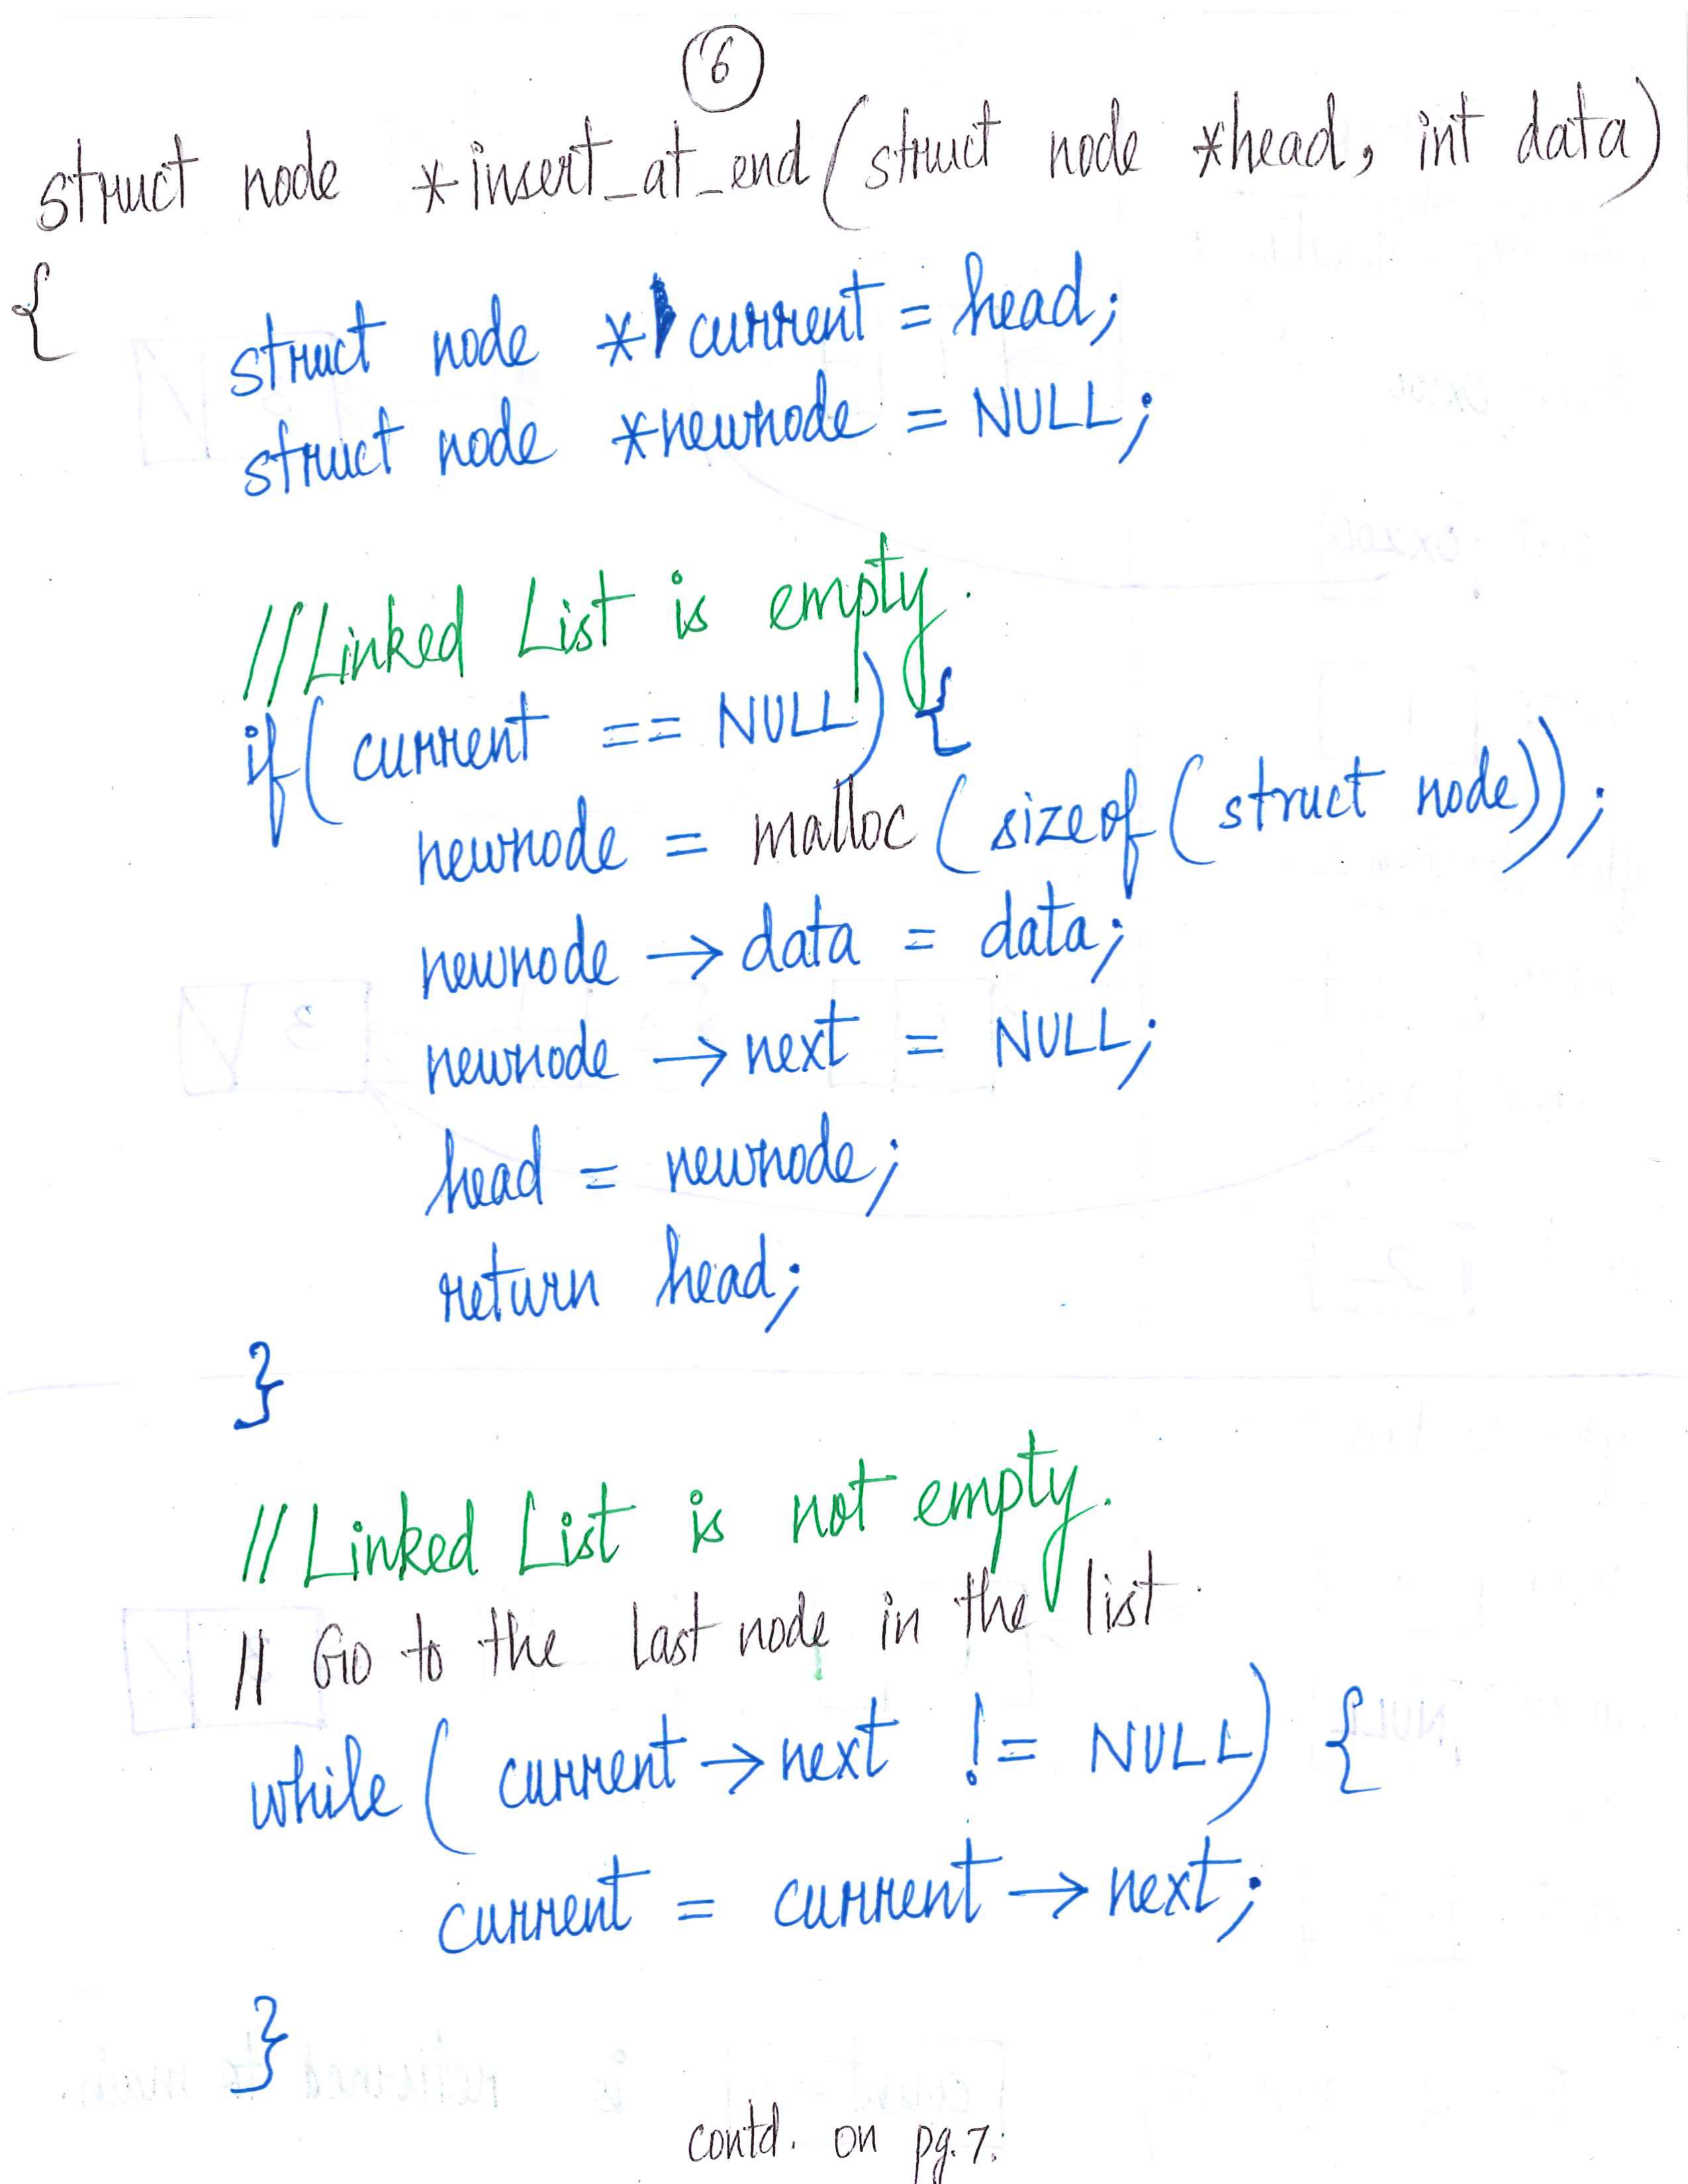 6
struct node *insert_at_end(struct node *head, int data)
{
struct node *current = head;
struct node *newnode = NULL;
//Linked List is empty.
if(current == NULL) {
newnode = malloc(sizeof(struct node));
newnode → data = data;
newnode → next = NULL;
head = newnode;
return head;
}
//Linked List is not empty.
// Go to the last node in the list.
while(current → next != NULL) {
current = current → next;
}
contd. on pg.7.